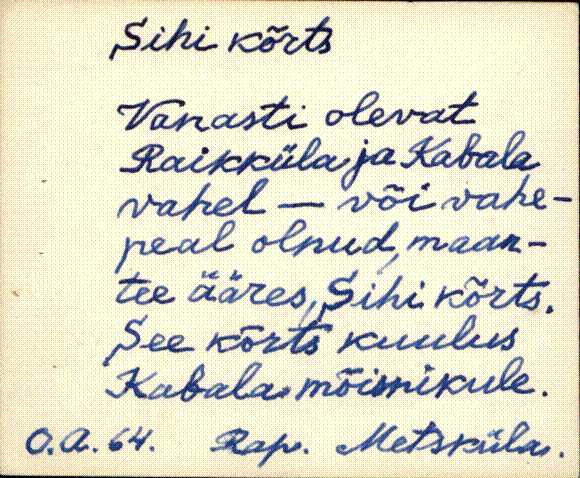 Sihi kõrts
Vanasti olevat
Raikküla ja Kabala
vahel – või vahe-
peal olnud, maan-
tee ääres, Sihi kõrts.
See kõrts kuulus
Kabala mõisnikule.
O.A. 64. Rap. Metsküla.